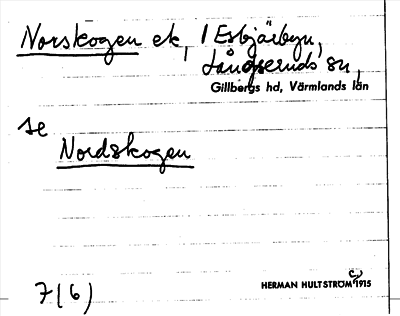 Norskogen ek, 1 Esbjärbyn,
Långseruds sn,
Gillbergs hd, Värmlands län
se
Nordskogen
7(6)
HERMAN HULTSTRÖM(c) 1915